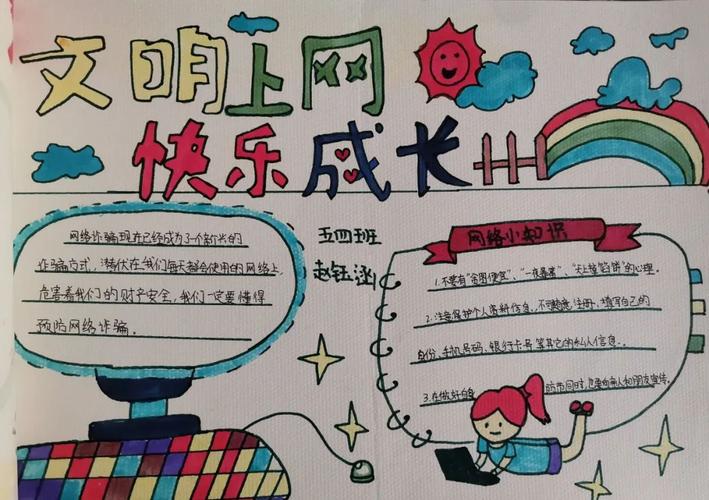 文明上网
快乐成长
五四班
赵钰涵
网络诈骗现在已经成为了一个新的
诈骗方式,潜伏在我们每天都会使用的网络上,
危害着我们的财产安全,我们一定要懂得
预防网络诈骗。
网络小知识
1.不要有“贪图便宜”、“一夜暴富”、“天上掉馅饼”的心理。
2.注意保护个人资料信息,不随意注册、填写自己的
身份、手机号码、银行卡号等其它的私人信息。
3.在做好自 同时,也要向家人和朋友宣传。